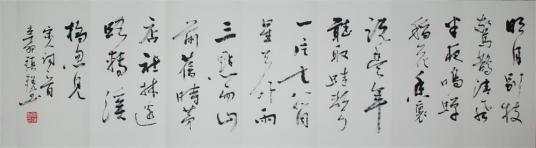 明月別枝
驚鵲清風
半夜鳴蟬
稻花香裏
說豐年
聽取蛙聲
一片七八箇
星天外兩
三點雨山
前舊時茅
店社林邊
路轉溪
橋忽見
宋詞一首